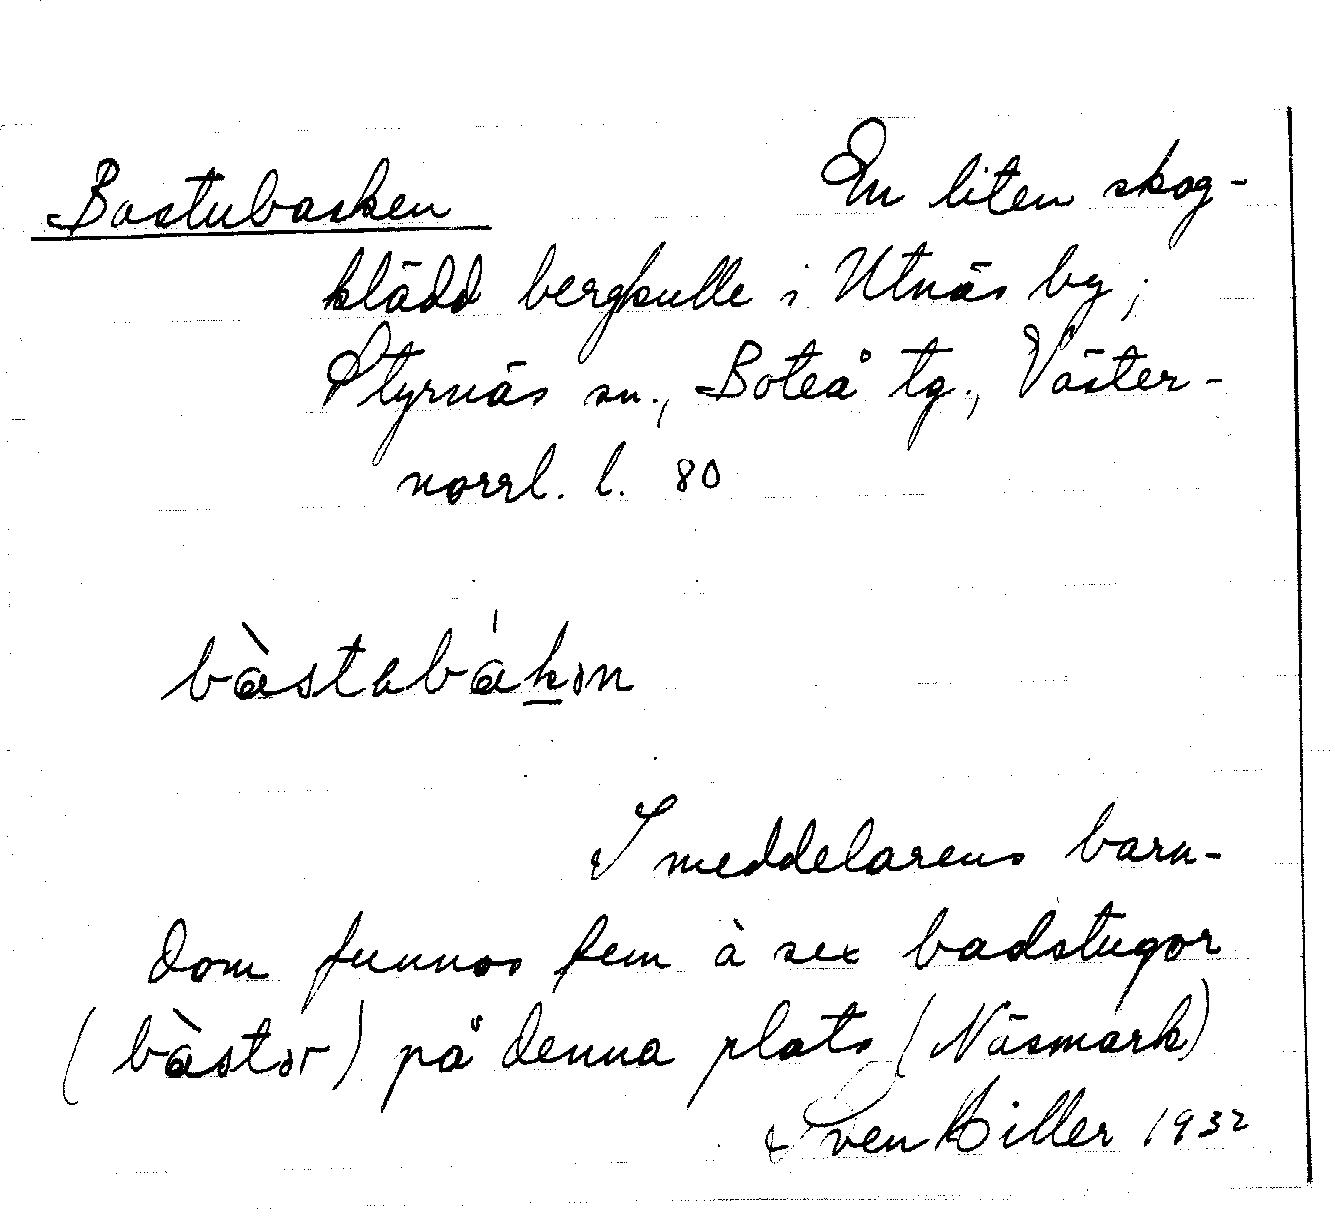 Bastubacken En liten skog-
klädd bergkulle i Utnäs by,
Styrnäs sn., Boteå tg., Väster-
norrl. l. 80
bàstabákən
I meddelarens barn-
dom funnos fem à sex badstugor
(bàstər) på denna plats (Näsmark)
Sven Hiller 1932